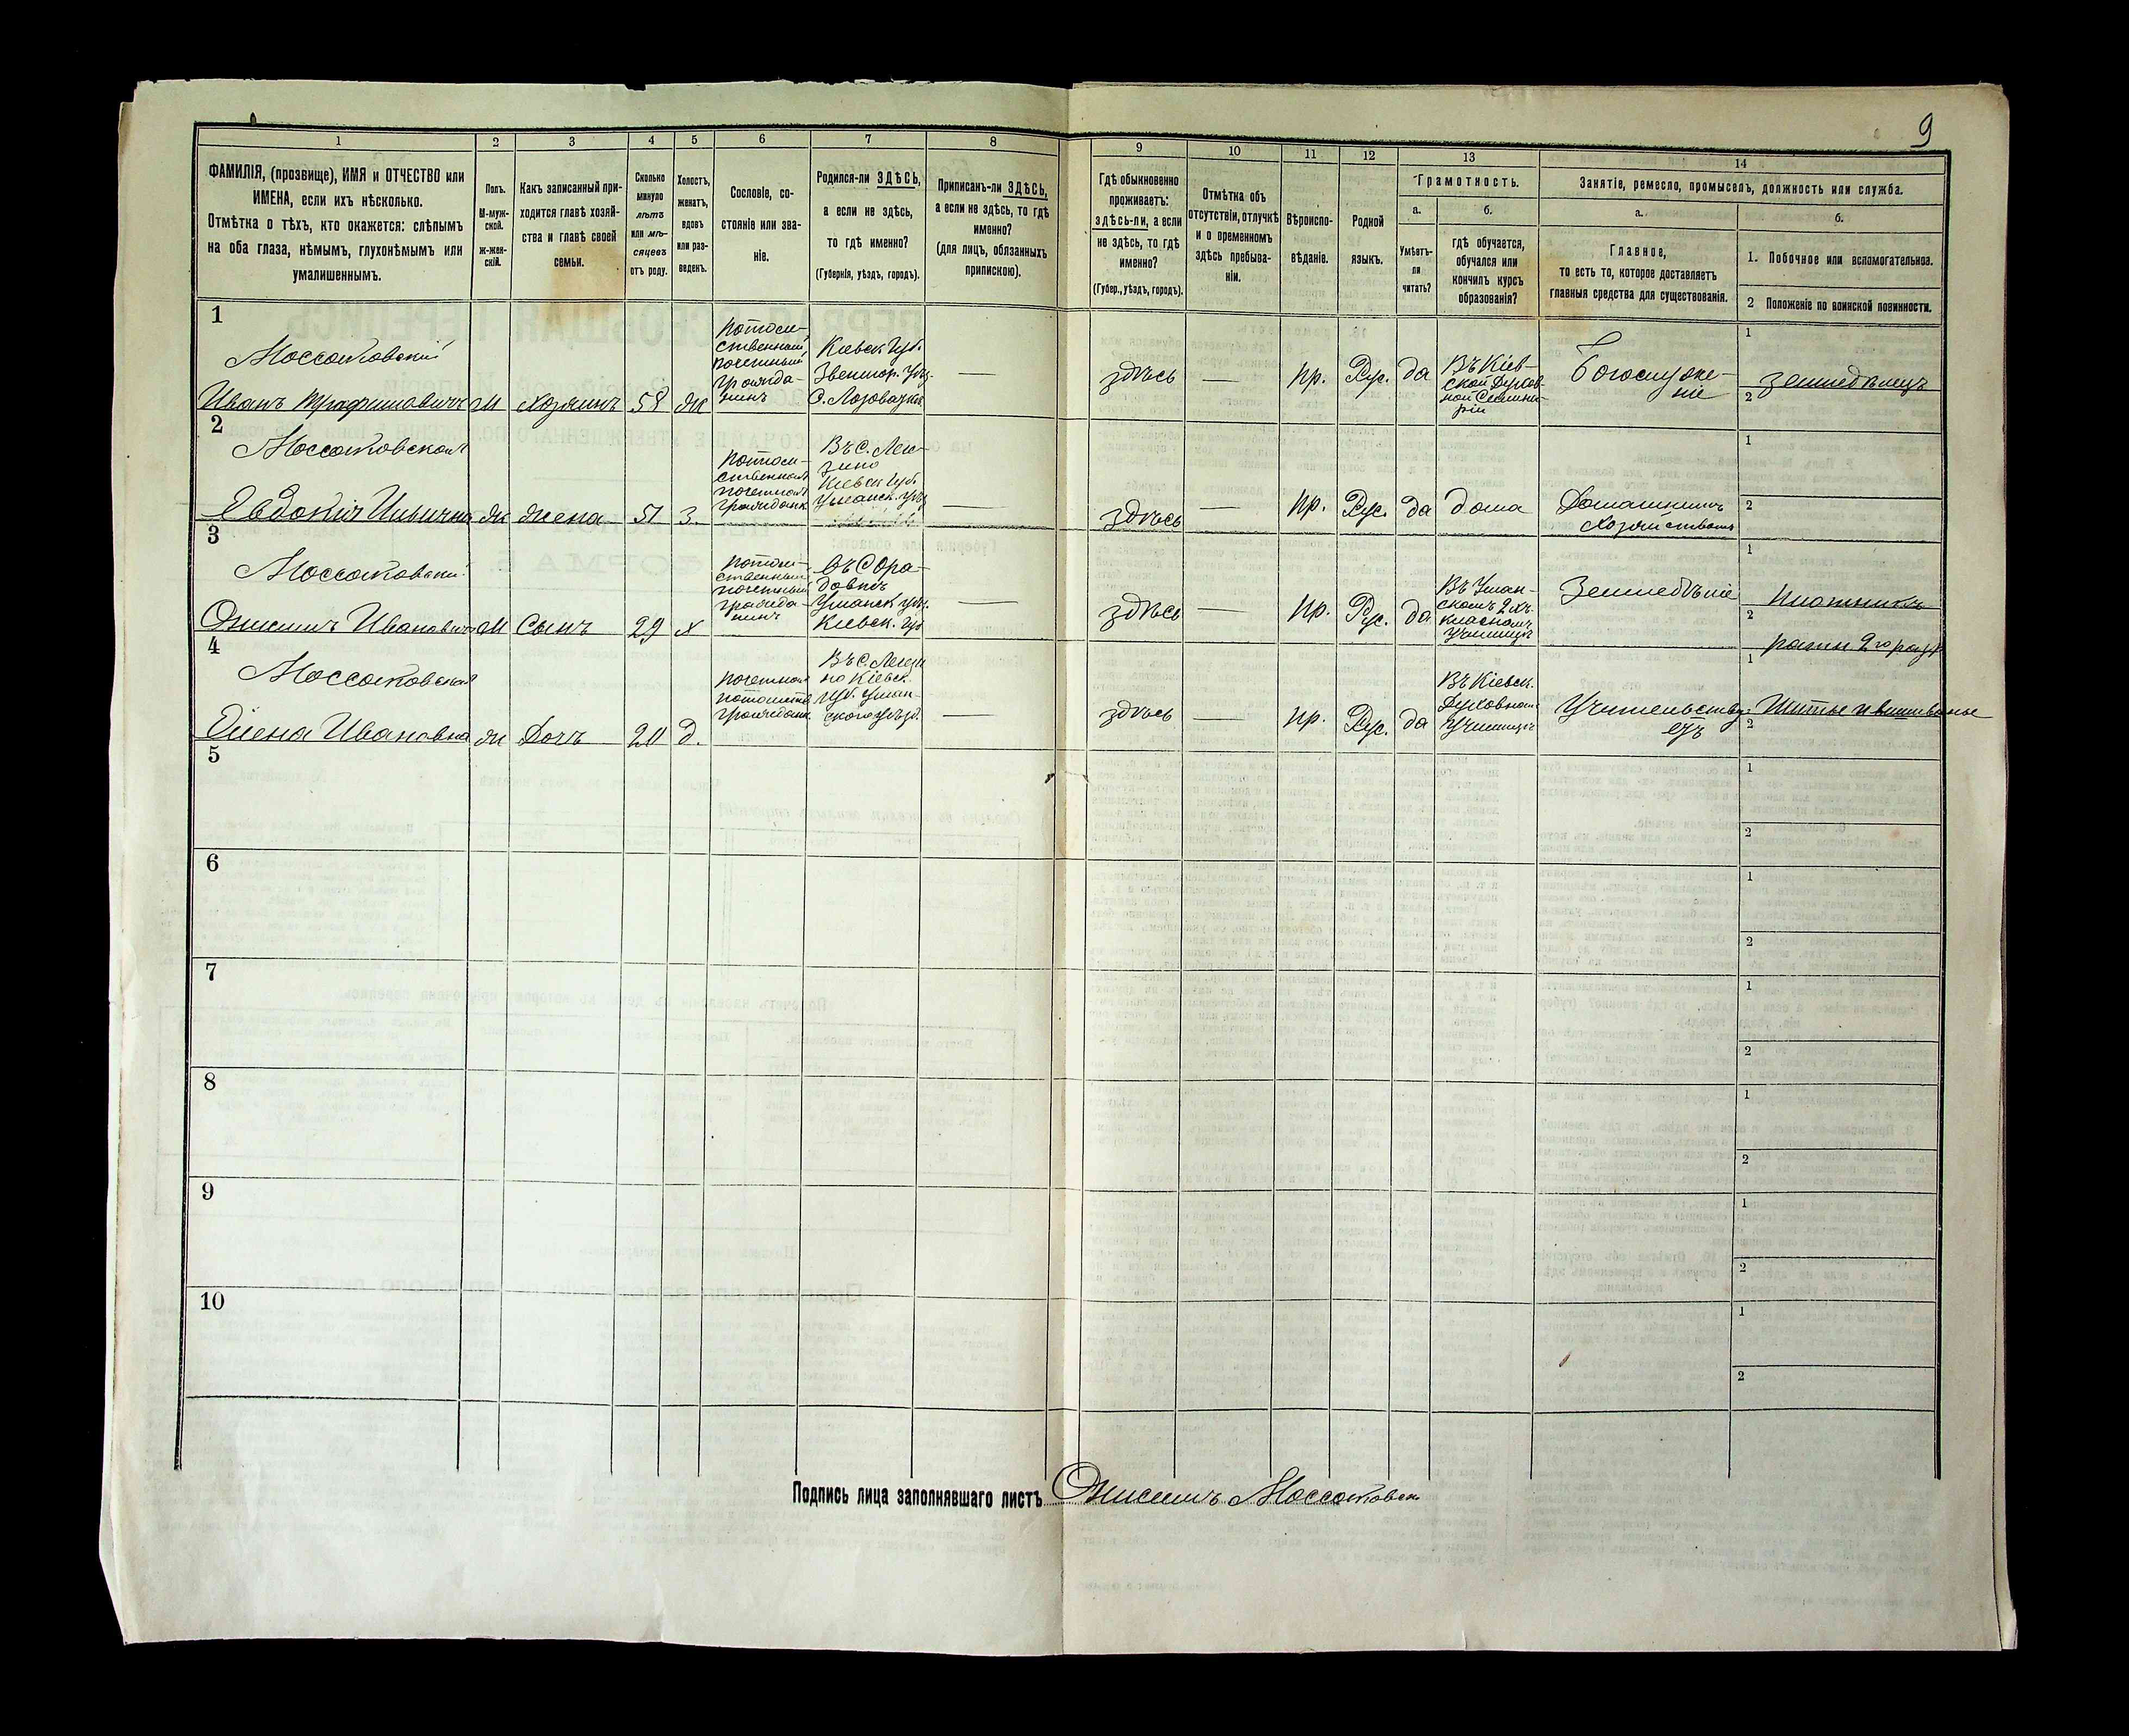 9
1
2
3
4
5
6
7
8
9
10
11
12
13
14
ФАМИЛІЯ, (прозвище), ИМЯ и ОТЧЕСТВО или
ИМЕНА, если ихъ нѣсколько.
Отмѣтка о тѣхъ, кто окажется: слѣпымъ
на оба глаза, нѣмымъ, глухонѣмымъ или
умалишеннымъ.
Полъ.
М-муж-
ской.
ж-жен-
скій.
Какъ записанный при-
ходится главѣ хозяй-
ства и главѣ своей
семьи.
Сколько
минуло
лѣтъ
или мѣ-
сяцевъ
отъ роду.
Холостъ,
женатъ,
вдовъ
или раз-
веденъ.
Сословіе, со-
стояніе или зва-
ніе.
Родился-ли ЗДѢСЬ,
а если не здѣсь,
то гдѣ именно?
(Губернія, уѣздъ, городъ).
Приписанъ-ли ЗДѢСЬ,
а если не здѣсь, то гдѣ
именно?
(для лицъ, обязанныхъ
припискою).
Гдѣ обыкновенно
проживаетъ:
здѣсь-ли, а если
не здѣсь, то гдѣ
именно?
(Губер., уѣздъ, городъ).
Отмѣтка объ
отсутствіи, отлучкѣ
и о временномъ
здѣсь пребыва-
ніи.
Вѣроиспо-
вѣданіе.
Родной
языкъ.
Грамотность.
а.
Умѣетъ-
ли
читать?
б.
гдѣ обучается,
обучался или
кончилъ курсъ
образованія?
Занятіе, ремесло, промыселъ, должность или служба.
а.
Главное,
то есть то, которое доставляетъ
главныя средства для существованія.
б.
1. Побочное или вспомогательное.
2 Положеніе по воинской повинности.
1
Моссаковскій
Иванъ Трофимовичъ
М
Хозяинъ
58
Ж
Потом-
ственный
почетный
гражда-
нинъ
Кіевск Губ.
Звенигор. Уѣз.
С. Лозоватка
—
здѣсь
—
пр.
Рус.
да
Въ Кіев-
ской Духов-
ной Семина-
ріи
Богослуже-
ніе
1
земледѣлецъ
2
2
Моссаковская
Евдокія Ильична
Ж
Жена
51
З.
Потом-
ственная
почетная
гражданк
Въ С. Лещ-
зино
Кіевск Губ
Уманск. уѣз
—
здѣсь
—
пр.
Рус.
да
дома
Домашнимъ
Хозяйствомъ
1
2
3
Моссаковскій
Онисимъ Ивановичъ
М
Сынъ
29
Х
Потом-
ственный
почетный
гражда-
нинъ
Въ С Ора-
довкѣ
Уманск уѣз.
Кіевск. Губ
—
здѣсь
—
пр.
Рус.
да
Въ Уман-
скомъ 2хъ
класномъ
Училищѣ
Земледѣліе
1
плотникъ
2
ратн. 2го разр
4
Моссаковская
Елена Ивановна
Ж
Дочь
20
Д.
почетная
потомств
гражданк
—
здѣсь
—
пр.
Рус.
да
Въ Кіевск.
Духовном
Училищѣ
Учительству-
етъ
1
Шитье и вышиванье
2
5
1
2
6
1
2
7
1
2
8
1
2
9
1
2
10
1
2
Подпись лица заполнявшаго листъ Онисимъ Моссаковскі